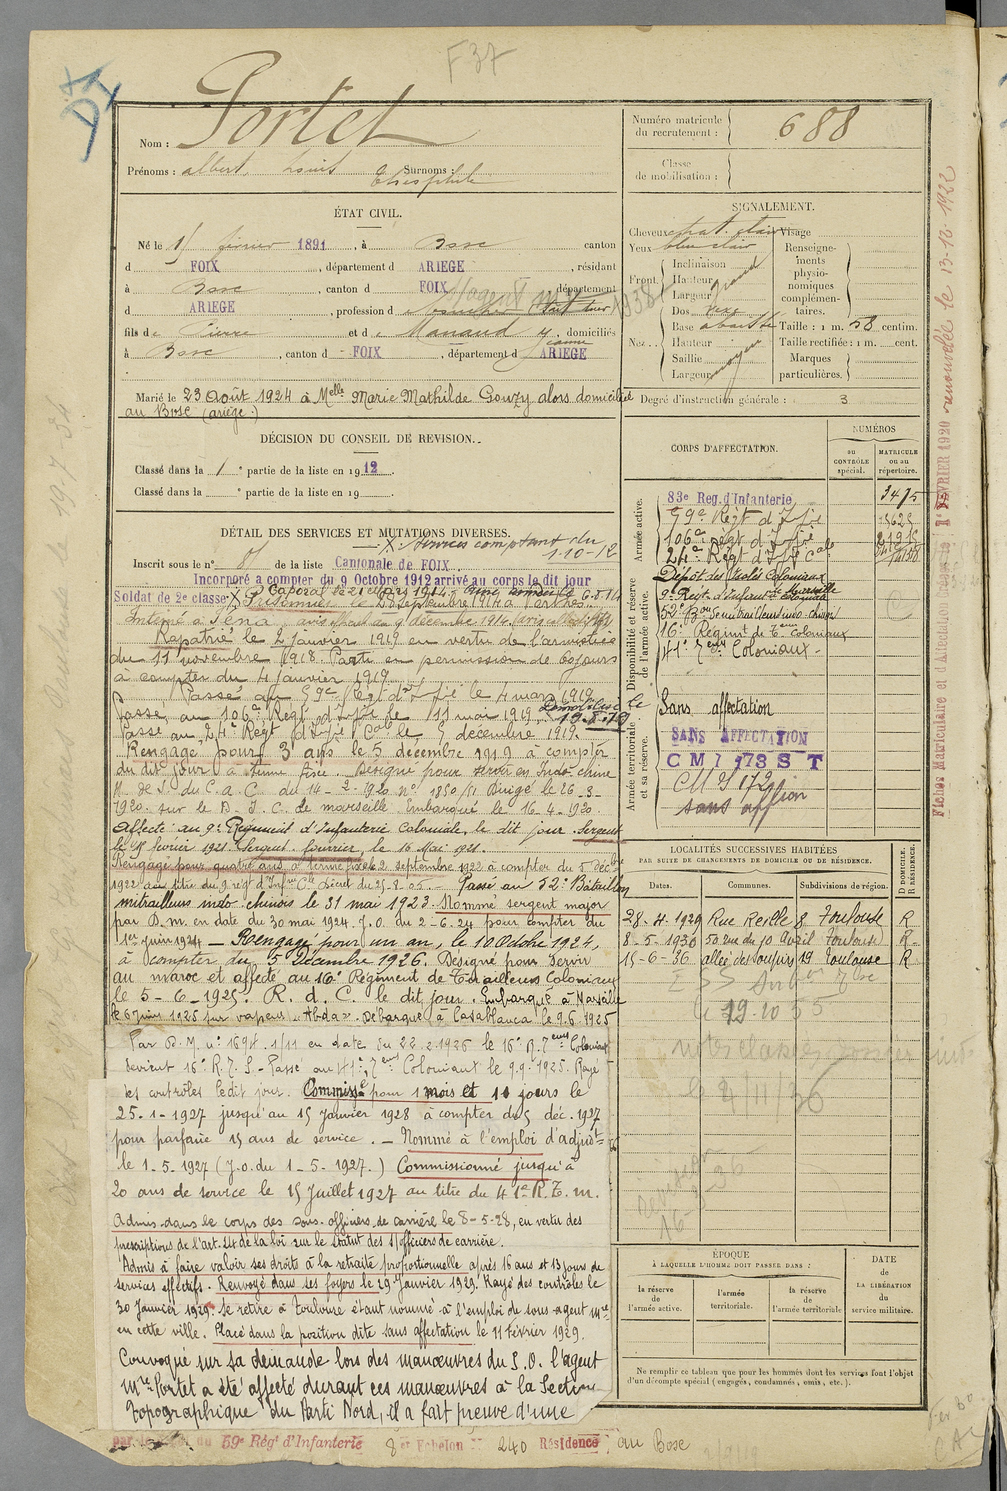 F 37
Nom : Portet
Prénoms : albert, Louis Théophile Surnoms :
Numéro matricule du recrutement : 688
Classe de mobilisation :
ÉTAT CIVIL.
Né le 15 février 1891, à Bosc canton
d FOIX, département d ARIEGE, résidant
à Bosc, canton d FOIX, département
d ARIEGE, profession d
fils de Pierre et de Manaud Jeanne, domiciliés
à Bosc, canton d FOIX, département d ARIEGE
Marié le 23 Août 1924 à Melle Marie Mathilde Gouzy alors domiciliée
au Bosc (ariège.)
DÉCISION DU CONSEIL DE REVISION.
Classé dans la 1e partie de la liste en 1912.
Classé dans la e partie de la liste en 19
DÉTAIL DES SERVICES ET MUTATIONS DIVERSES.
X. Services comptant du 1-10-12
Inscrit sous le n° de la liste Cantonale de FOIX
Incorporé a compter du 9 Octobre 1912 arrivé au corps le dit jour
Soldat de 2e classe X Caporal le 21 Mars 1914.
Prisonnier le
Interné à Iéna,
Rapatrié le 2 janvier 1919 en vertu de l'armistice
du 11 novembre 1918. Parti en permission de 60 jours
à compter du 4 Janvier 1919.
Passé au 59e Régt d'Ifie le 4 mars 1919
passé au 106e Régt d'Ifie le 11 mai 1919. Démobilisé le
Passé au 24e Régt d'Ifie Cale le 5 décembre 1919.
Rengagé pour 3 ans le 5 décembre 1919 à compter
du dit jour à terme fixe. Désigné pour servir en Indo-chine
1920 sur le D. I. C. de marseille. Embarqué le 16.4.1920.
Affecté au 9e Régiment d'Infanterie Coloniale, le dit jour Sergent
le 1er février 1921. Sergent fourrier, le 16 Mai 1921.
Rengagé pour quatre ans à terme fixe le 2 septembre 1922 à compter du 5 décbre
1922 au titre du 9 régt d'Infrie Cle décret du 25-8-05. - Passé au 52e Bataillon
mitrailleurs indo-chinois le 31 mai 1923. Nommé sergent major
par D.M. en date du 30 mai 1924. J.O. du 2-6-24 pour compter du
1er Juin 1924 — Rengagé pour un an, le 10 Octobre 1924,
à compter du 5 Décembre 1926. Désigné pour servir
au maroc et affecté au 16e Régiment de Tirailleurs Coloniaux
le 5-6-1925. R. d. C. le dit jour. Embarqué à Marseille
le 6 Juin 1925 sur vapeur "Abda". Débarqué à Casablanca le 9.6.1925
Par D.M. n° 1694.1/11 en date du 22.2.1926 le 16e R. Teurs Coloniaux
devient 16e R.T.S. - Passé au 41e Teurs Coloniaux le 9.9.1925. Rayé
des contrôles le dit jour. Commissé pour 1 mois et 10 jours le
25-1-1927 jusqu'au 15 Janvier 1928 à compter du 5 déc. 1927
pour parfaire 15 ans de service. — Nommé à l'emploi d'adjudt
le 1-5-1927 (J.O. du 1-5-1927.) Commissionné jusqu'à
20 ans de service le 15 Juillet 1927 au titre du 41e R.T.m.
Admis dans le corps des sous-officiers de carrière le 8-5-28, en vertu des
prescriptions de l'art. 24 de la loi sur le statut des s/officiers de carrière.
Admis à faire valoir ses droits à la retraite proportionnelle après 16 ans et 13 jours de
services effectifs. Renvoyé dans ses foyers le 29 Janvier 1929. Rayé des contrôles le
30 Janvier 1929. Se retire à Toulouse étant nommé à l'emploi de sous-agent mre
en cette ville. Placé dans la position dite sans affectation le 11 Février 1929.
Convoqué sur sa demande lors des manœuvres du S.O. l'agent
mre Portet a été affecté durant ces manœuvres à la Section
topographique du Parti Nord, il a fait preuve d'une
59e Rég d'Infanterie 8 er Echelon 240 Résidence au Bosc
SIGNALEMENT.
Cheveux chat. clair Visage
Yeux bleu clair
Front. Inclinaison
Hauteur
Largeur grand
Nez. Dos
Base
Hauteur
Saillie
Largeur moyen
Renseignements physionomiques complémentaires.
Taille : 1 m. 58 centim.
Taille rectifiée : 1 m. cent.
Marques particulières.
Degré d'instruction générale : 3
CORPS D'AFFECTATION.
NUMÉROS
au CONTRÔLE spécial.
MATRICULE ou au répertoire.
Armée active.
83e Reg. d'Infanterie 3475
59e Régt d'Ifie
106e Régt d'Ifie
24e Régt d'Ifie Cale
Disponibilité et réserve de l'armée active.
Dépôt des Isolés Coloniaux de Marseille
9e Régt d'Infanterie Coloniale
16e Régimt de Teurs coloniaux
41e Teurs Coloniaux
Armée territoriale et sa réserve.
Sans affectation
SANS AFFECTATION
CM I 173 S T
CM I 172
sans affion
LOCALITÉS SUCCESSIVES HABITÉES
PAR SUITE DE CHANGEMENTS DE DOMICILE OU DE RÉSIDENCE.
Dates. Communes. Subdivisions de région. D DOMICILE. R RÉSIDENCE.
28-4-1929 Rue Reille 8 Toulouse R
8-5-1930 50 rue du 10 Avril Toulouse R
15-6-36 allée des Soupirs 19 Toulouse R
le 19-10 55
ÉPOQUE
À LAQUELLE L'HOMME DOIT PASSER DANS :
la réserve de l'armée active.
l'armée territoriale.
la réserve de l'armée territoriale
DATE de LA LIBÉRATION du service militaire.
Ne remplir ce tableau que pour les hommes dont les services font l'objet
d'un décompte spécial (engagés, condamnés, omis, etc.).
Fiches Matriculaire et d'Affectation Créées le 1er FÉVRIER 1920 renouvelée le 13-12-1922